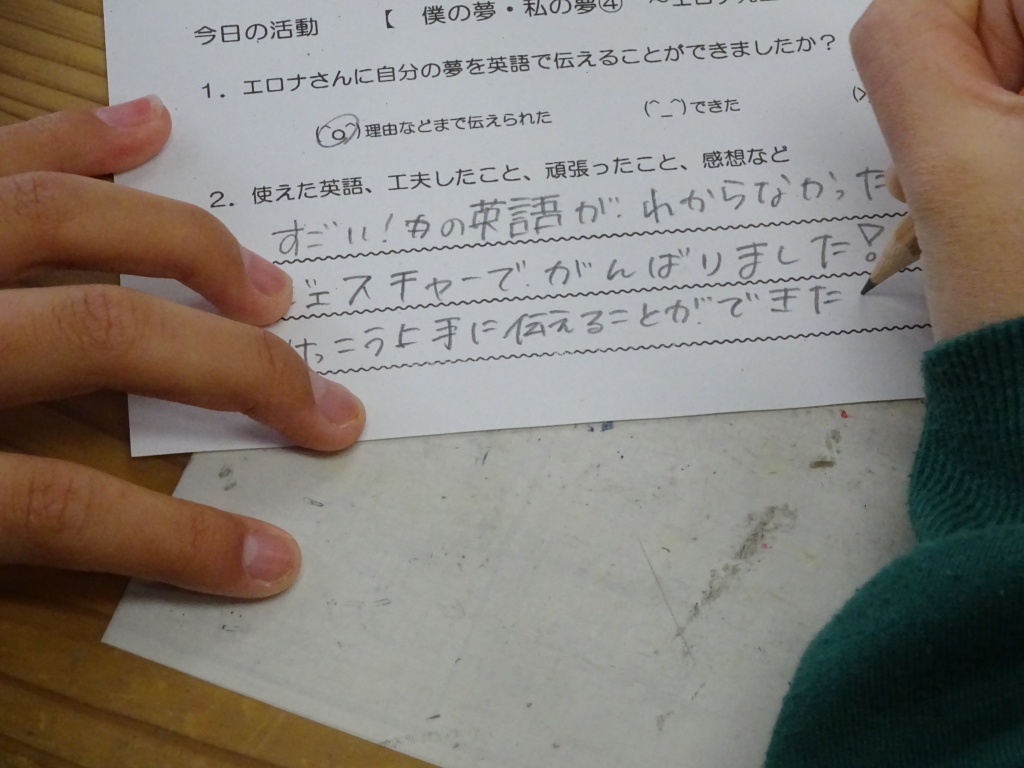 今日の活動 【 僕の夢・私の夢④ ~エロナ先生
1. エロナさんに自分の夢を英語で伝えることができましたか?
(^o^)理由などまで伝えられた (^_^)できた (>
2. 使えた英語、工夫したこと、頑張ったこと、感想など
すごい!カの英語がわからなかった
ジェスチャーでがんばりました!
けっこう上手に伝えることができた